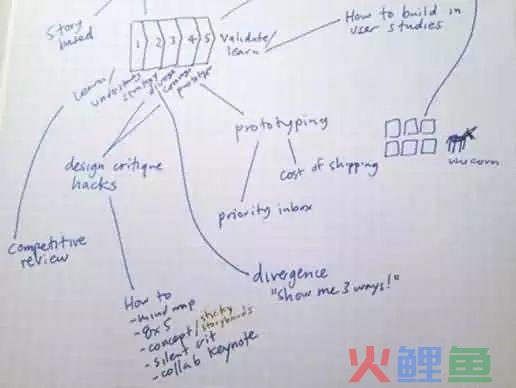 Story
based
1 2 3 4 5
Validate/
learn
How to build in
user studies
Learn/
understand
strategy
diverge
converge
prototype
prototyping
cost of shipping
priority inbox
unicorn
design critique
hacks
competitive
review
divergence
"show me 3 ways!"
How to
- mind map
- 8x5
- concept/sticky storyboards
- silent crit
- collab keynote
火鲤鱼